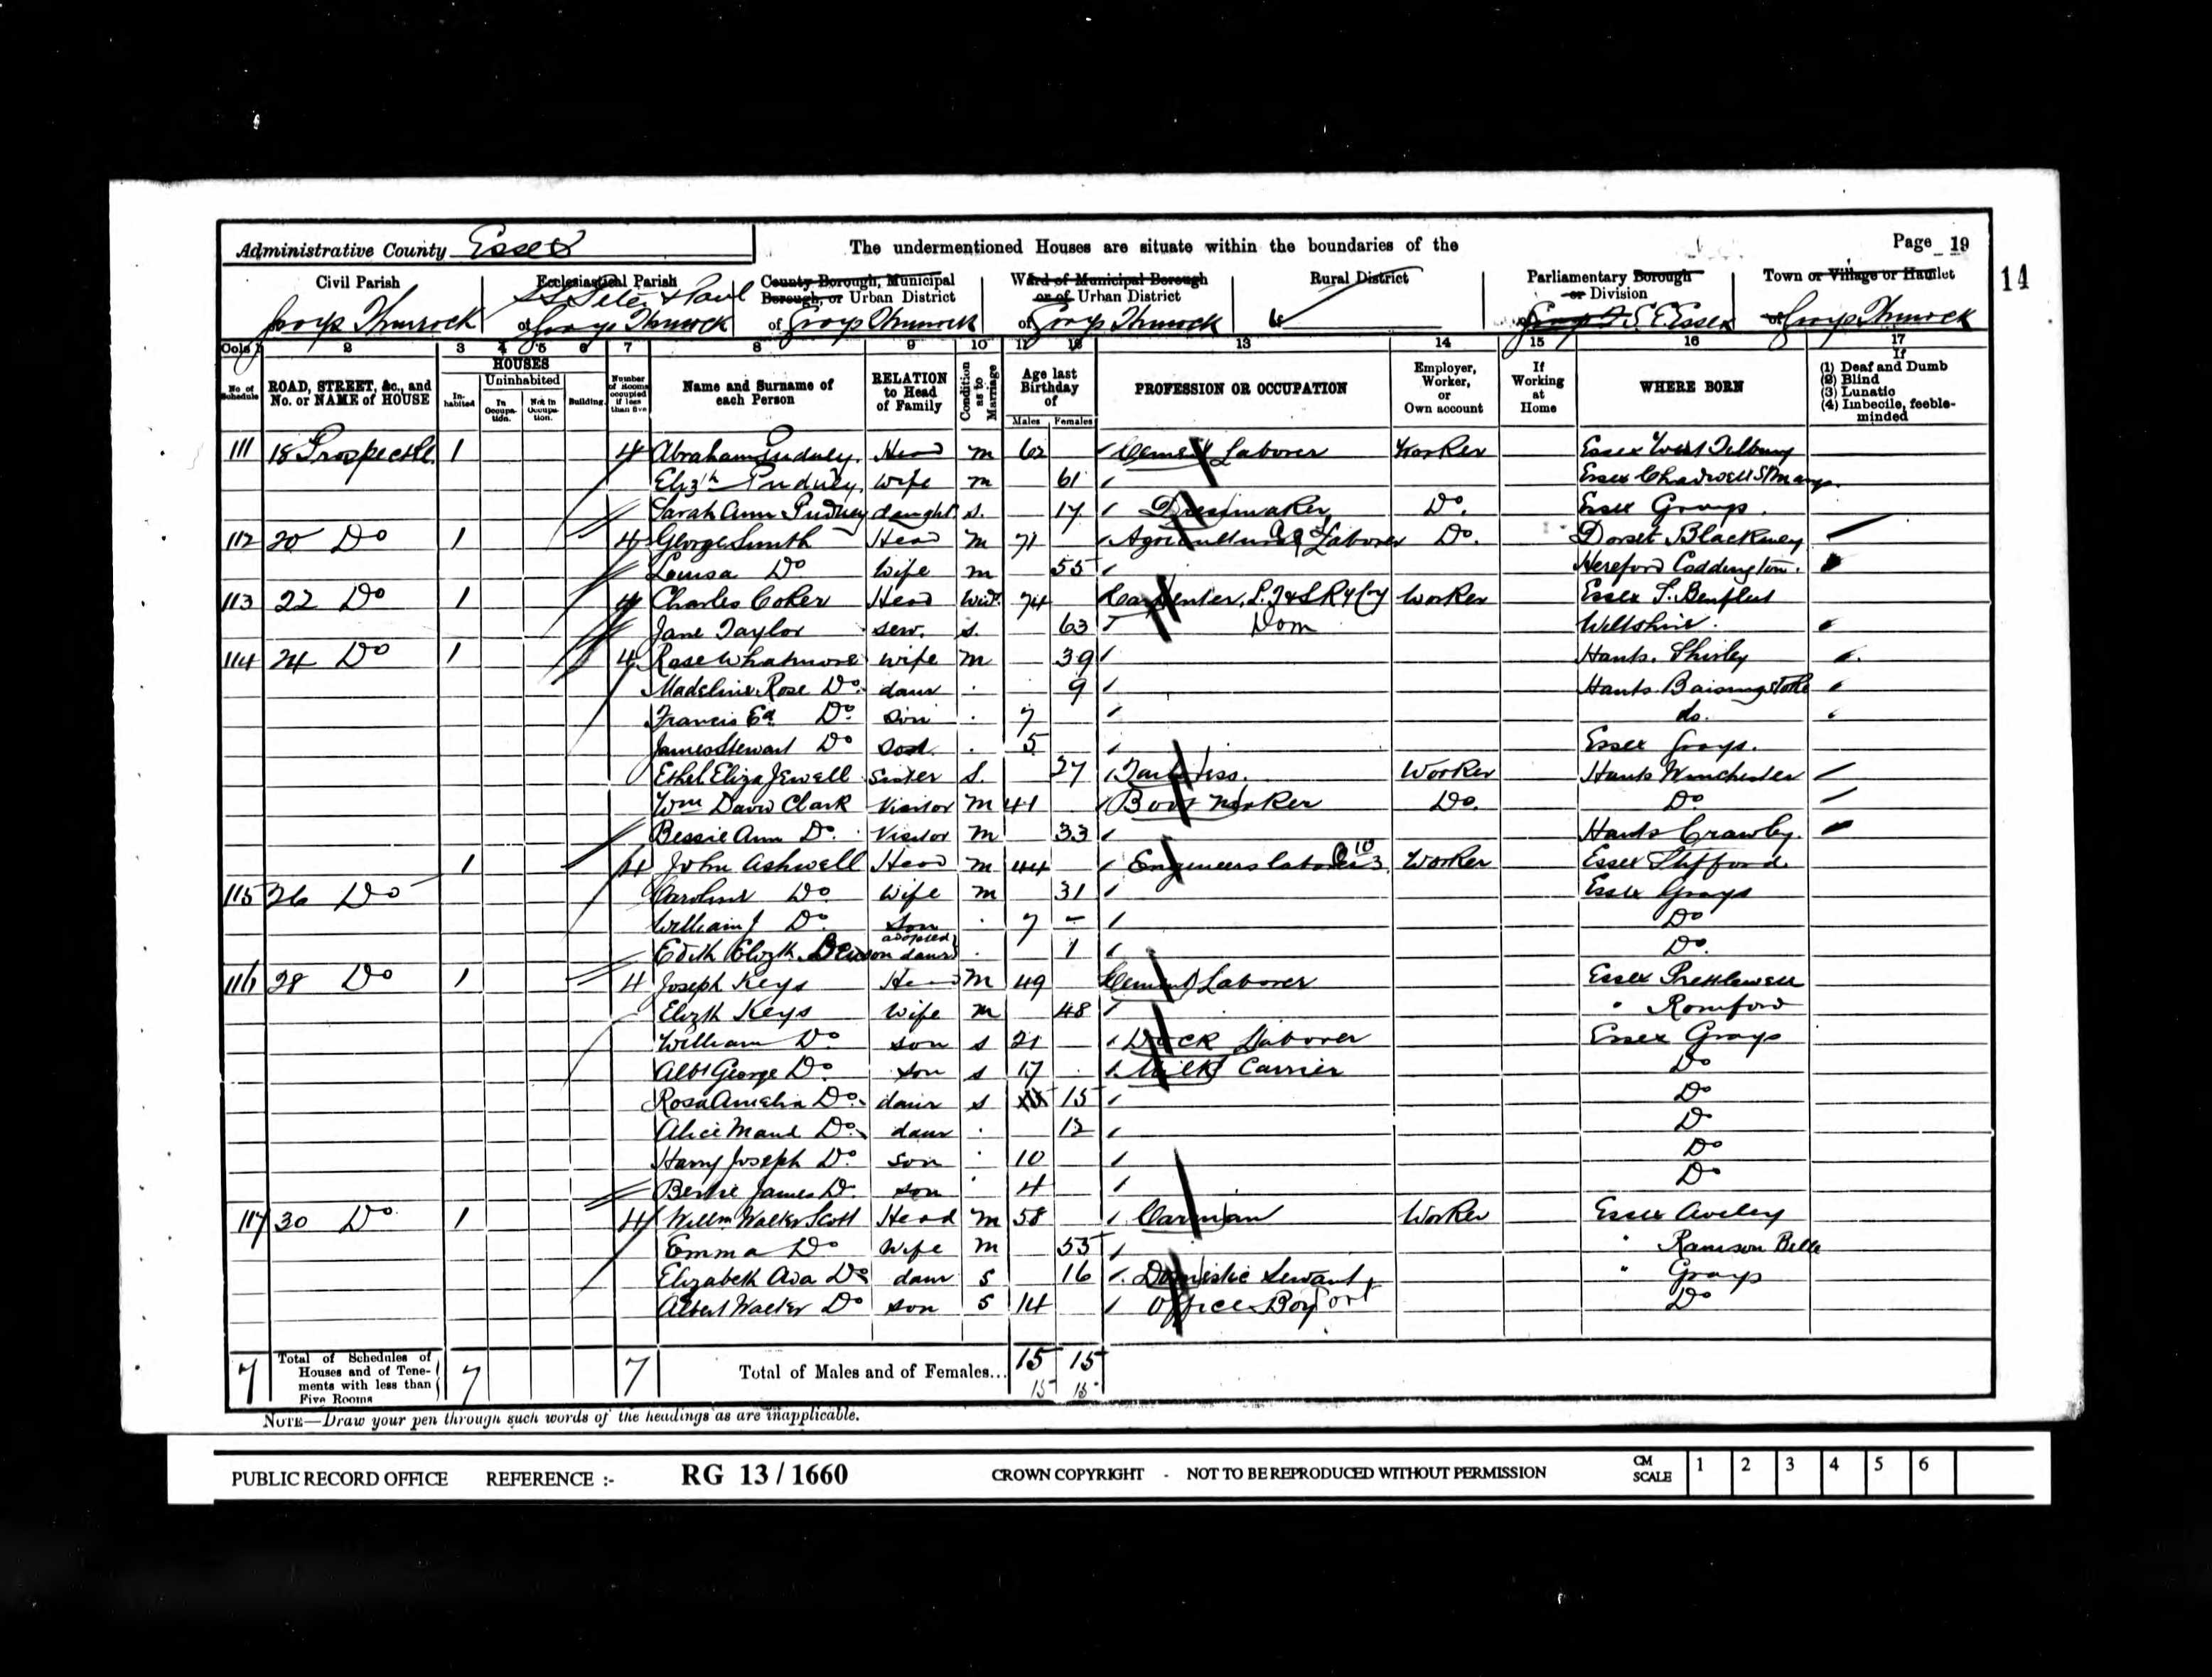 Administrative County Essex
The undermentioned Houses are situate within the boundaries of the
Page 19
14
Civil Parish
Ecclesiastical Parish
County Borough, Municipal Borough, or Urban District
Ward of Municipal Borough or of Urban District
Rural District
Parliamentary Borough or Division
Town or Village or Hamlet
Grays Thurrock
SS Peter & Paul
of Grays Thurrock
of Grays Thurrock
of Grays Thurrock
of
S. E. Essex
of Grays Thurrock
Cols 1 2 3 4 5 6 7 8 9 10 11 12 13 14 15 16 17
No. of Schedule
ROAD, STREET, &c., and No. or NAME of HOUSE
HOUSES
Inhabited
Uninhabited
In Occupation.
Not in Occupation.
Building.
Number of Rooms occupied if less than five
Name and Surname of each Person
RELATION to Head of Family
Condition as to Marriage
Age last Birthday of
Males Females
PROFESSION OR OCCUPATION
Employer, Worker, or Own account
If Working at Home
WHERE BORN
If
(1) Deaf and Dumb
(2) Blind
(3) Lunatic
(4) Imbecile, feeble-minded
111 18 Prospect 1 4 Abraham Pudney Head M 62 Cement Laborer Worker Essex West Tilbury
Elizth Pudney Wife M 61 Essex Chadwell St Marys
Sarah Ann Pudney daught S. 17 Dressmaker Do. Essex Grays
112 20 Do 1 4 George Smith Head M 71 Agricultural Laborer Do. Dorset Blackney
Louisa Do Wife M 55 Hereford Coddington
113 22 Do 1 4 Charles Coker Head Widr 74 Carpenter, L. T & S Ry Coy Worker Essex S. Benfleet
Jane Taylor serv. S. 63 Dom Wiltshire
114 24 Do 1 4 Rose Whatmore Wife M 39 Hants. Shirley
Madeline Rose Do. daur 9 Hants Baisingstoke
Francis Ed. Do. Son 7 do.
James Stewart Do Son 5 Essex Grays.
Ethel Eliza Jewell Sister S. 27 Worker Hants Winchester
Wm David Clark Visitor M 41 Boot Maker Do. Do.
Bessie Ann Do. Visitor M 33 Hants Crawley.
1 4 John Ashwell Head M 44 Engineers laborer Worker Essex Stifford.
115 26 Do Caroline Do Wife M 31 Essex Grays
William J Do. Son 7 - Do
Edith Elizth adopted daur 1 Do.
116 28 Do 1 4 Joseph Keys Head M 49 Cement Laborer Essex Prettlewell
Elizth Keys Wife M 48 " Romford
William Do. son S 21 Dock Laborer Essex Grays
Albt George Do. son S 17 Milk Carrier Do
Rosa Amelia Do. daur S 15 Do
Alice Maud Do. daur 12 D
Harry Joseph Do. son 10 Do
Bertie James D. son 4 Do
117 30 Do 1 4 Willm Walter Scott Head M 58 Carman Worker Essex Aveley
Emma Do Wife M 53 " Ramson Belle
Elizabeth Ada Do daur S 16 Domestic Servant " Grays
Albert Walter Do son S 14 Office Boy Do
7 Total of Schedules of Houses and of Tenements with less than Five Rooms 7 7 Total of Males and of Females... 15 15
15 15
NOTE—Draw your pen through such words of the headings as are inapplicable.
PUBLIC RECORD OFFICE REFERENCE :- RG 13 / 1660 CROWN COPYRIGHT - NOT TO BE REPRODUCED WITHOUT PERMISSION CM SCALE 1 2 3 4 5 6